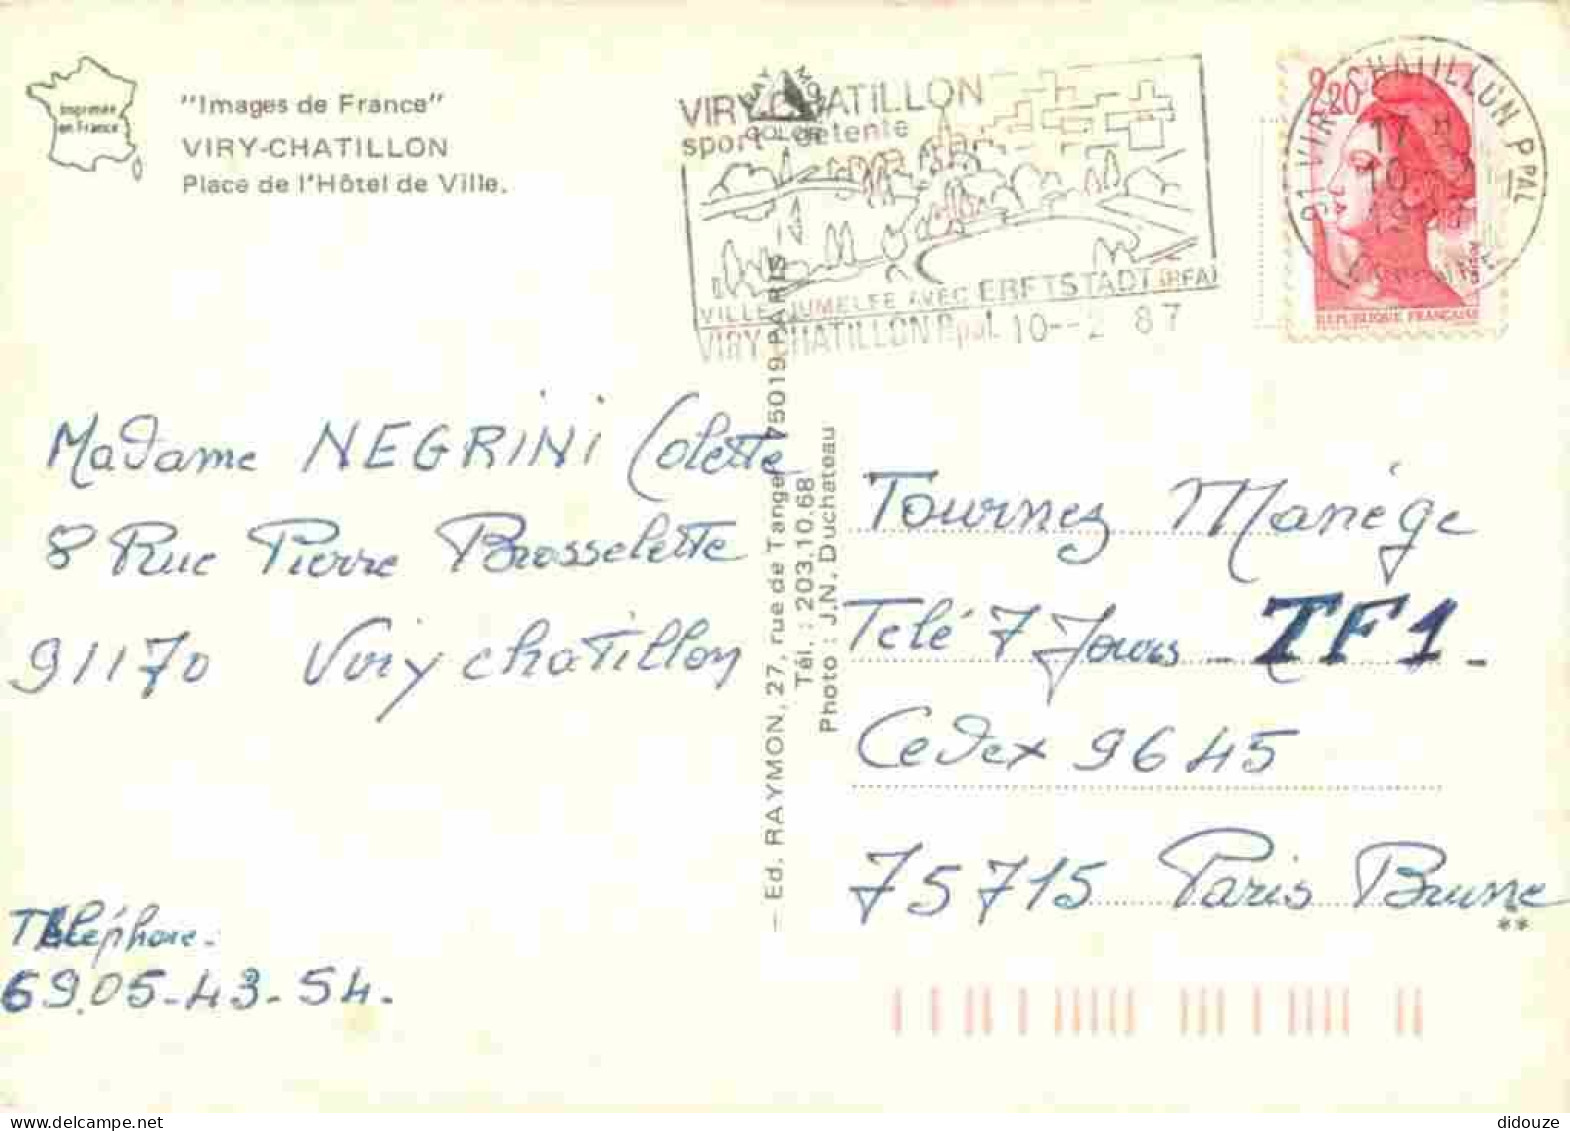 Imprimée
en France
"Images de France"
VIRY-CHATILLON
Place de l'Hôtel de Ville.
RAYMON
COLOR
VIRY-CHATILLON
sport détente
VILLE JUMELEE AVEC ERFTSTADT (RFA)
VIRY CHATILLON Ppal. 10--2 87
91 VIRY CHATILLON PPAL
17 H
10
ESSONNE
2,20
REPUBLIQUE FRANÇAISE
Madame NEGRINI Colette
8 Rue Pierre Brosselette
91170 Viry chatillon
Téléphone.
69.05-43-54.
– Ed. RAYMON, 27, rue de Tanger 75019 PARIS –
Tél. : 203.10.68
Photo : J.N. Duchateau
Tournez Manége
Telé 7 Jours - TF1 -
Cedex 9645
75715 Paris Brune
**
didouze